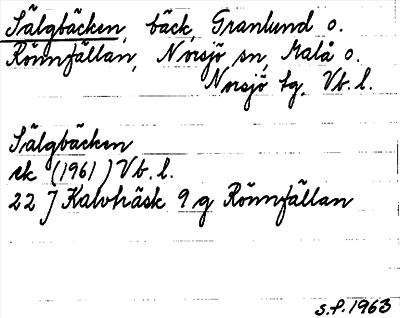 Sälgbäcken, bäck, Granlund o.
Rönnfällan, Norsjö sn, Malå o.
Norsjö tg, Vb. l.
Sälgbäcken
ek (1961) Vb. l.
22 J Kalvträsk 9 g Rönnfällan
s.f. 1963